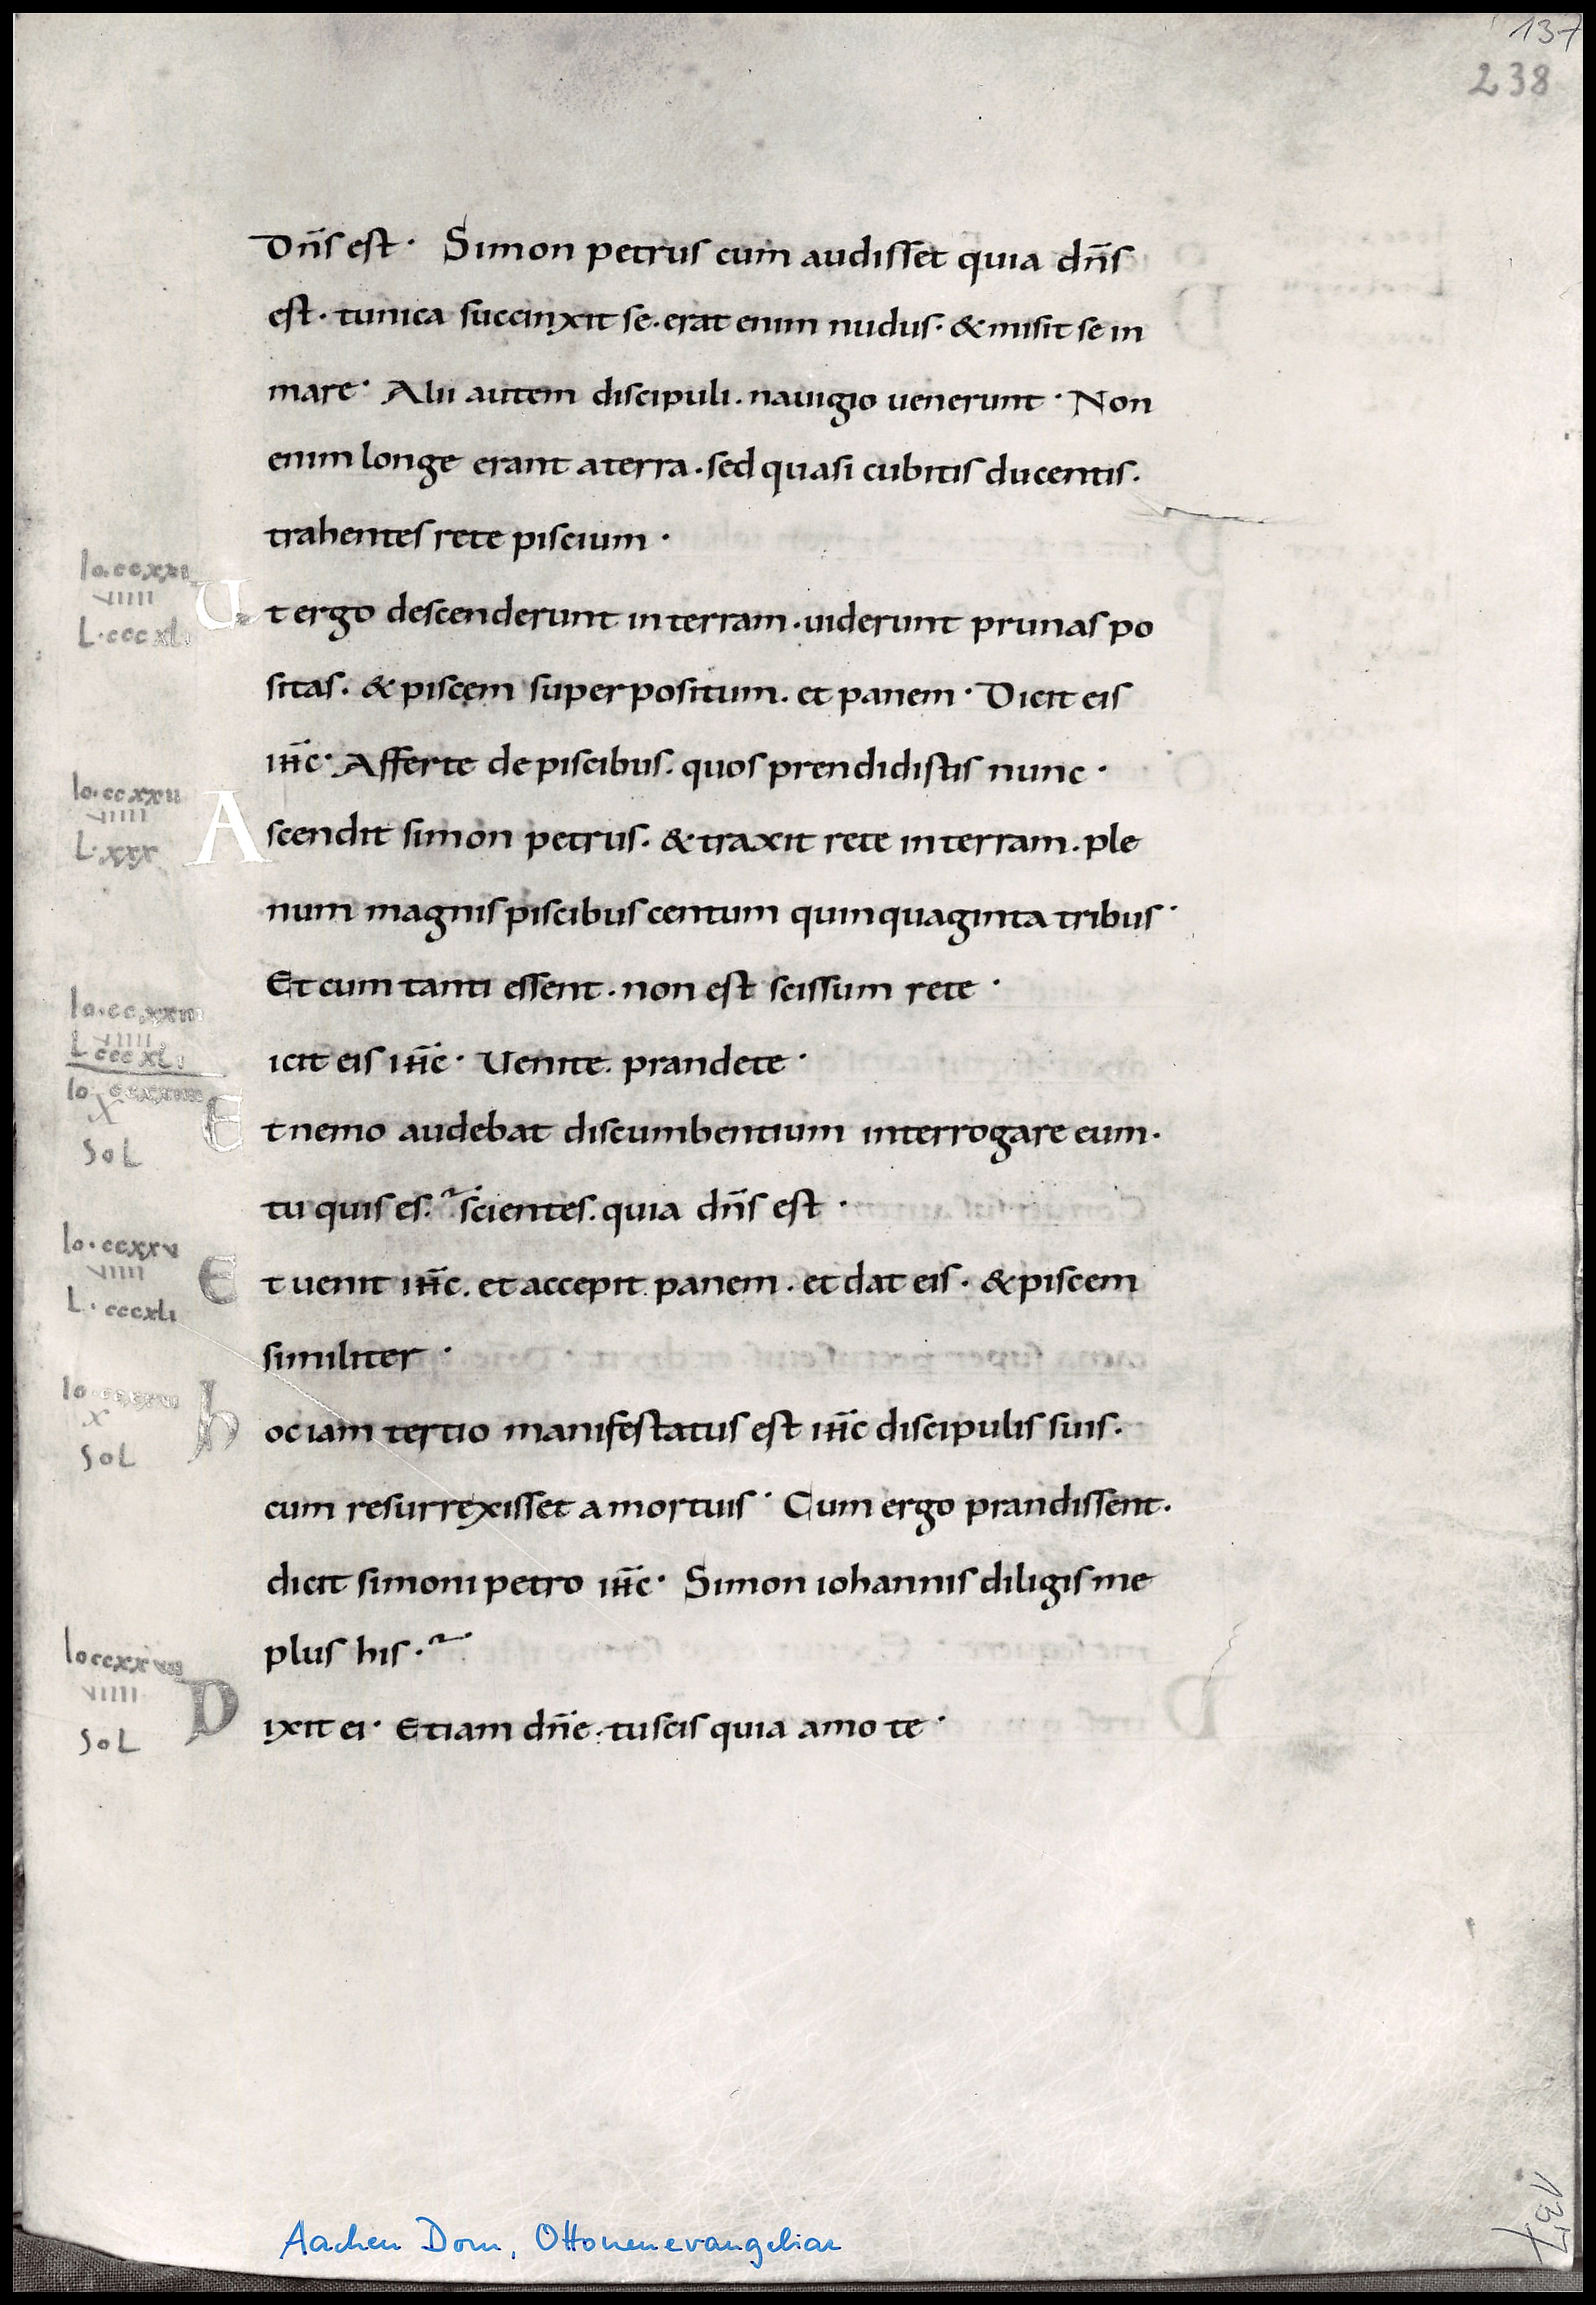 137
238
Dn̄s est · Simon petrus cum audisset quia dn̄s
est · tunica succinxit se · erat enim nudus · & misit se in
mare · Alii autem discipuli · nauigio uenerunt · Non
enim longe erant a terra · sed quasi cubitis ducentis ·
trahentes rete piscium ·
Io. ccxxi
VIIII
L · cccxLi
Ut ergo descenderunt in terram · uiderunt prunas po
sitas · & piscem super positum · et panem · Dicit eis
ih̄c · Afferte de piscibus · quos prendidistis nunc ·
Io · ccxxii
VIIII
L · xxx
Ascendit simon petrus · & traxit rete in terram · ple
num magnis piscibus centum quinquaginta tribus ·
Et cum tanti essent · non est scissum rete ·
Io · ccxxiii
VIIII
L cccxLi
icit eis ih̄c · Uenite · prandete ·
Io
X
SoL
Et nemo audebat discumbentium interrogare eum ·
tu quis es · scientes · quia dn̄s est ·
Io · ccxxv
VIIII
L · cccxLi
Et uenit ih̄c · et accepit panem · et dat eis · & piscem
similiter ·
Io · ccxxvi
X
SoL
hoc iam tertio manifestatus est ih̄c discipulis suis ·
cum resurrexisset a mortuis · Cum ergo prandissent ·
dicit simoni petro ih̄c · Simon iohannis diligis me
plus his ·
Io ccxxvii
VIIII
SoL
Dixit ei · Etiam dn̄e · tu scis quia amo te ·
Aachen Dom, Ottonenevangeliar
137